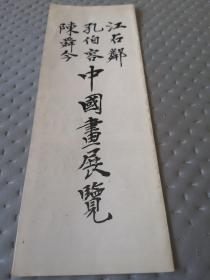 江石鄰
孔伯容
陳舜今
中國畫展覽